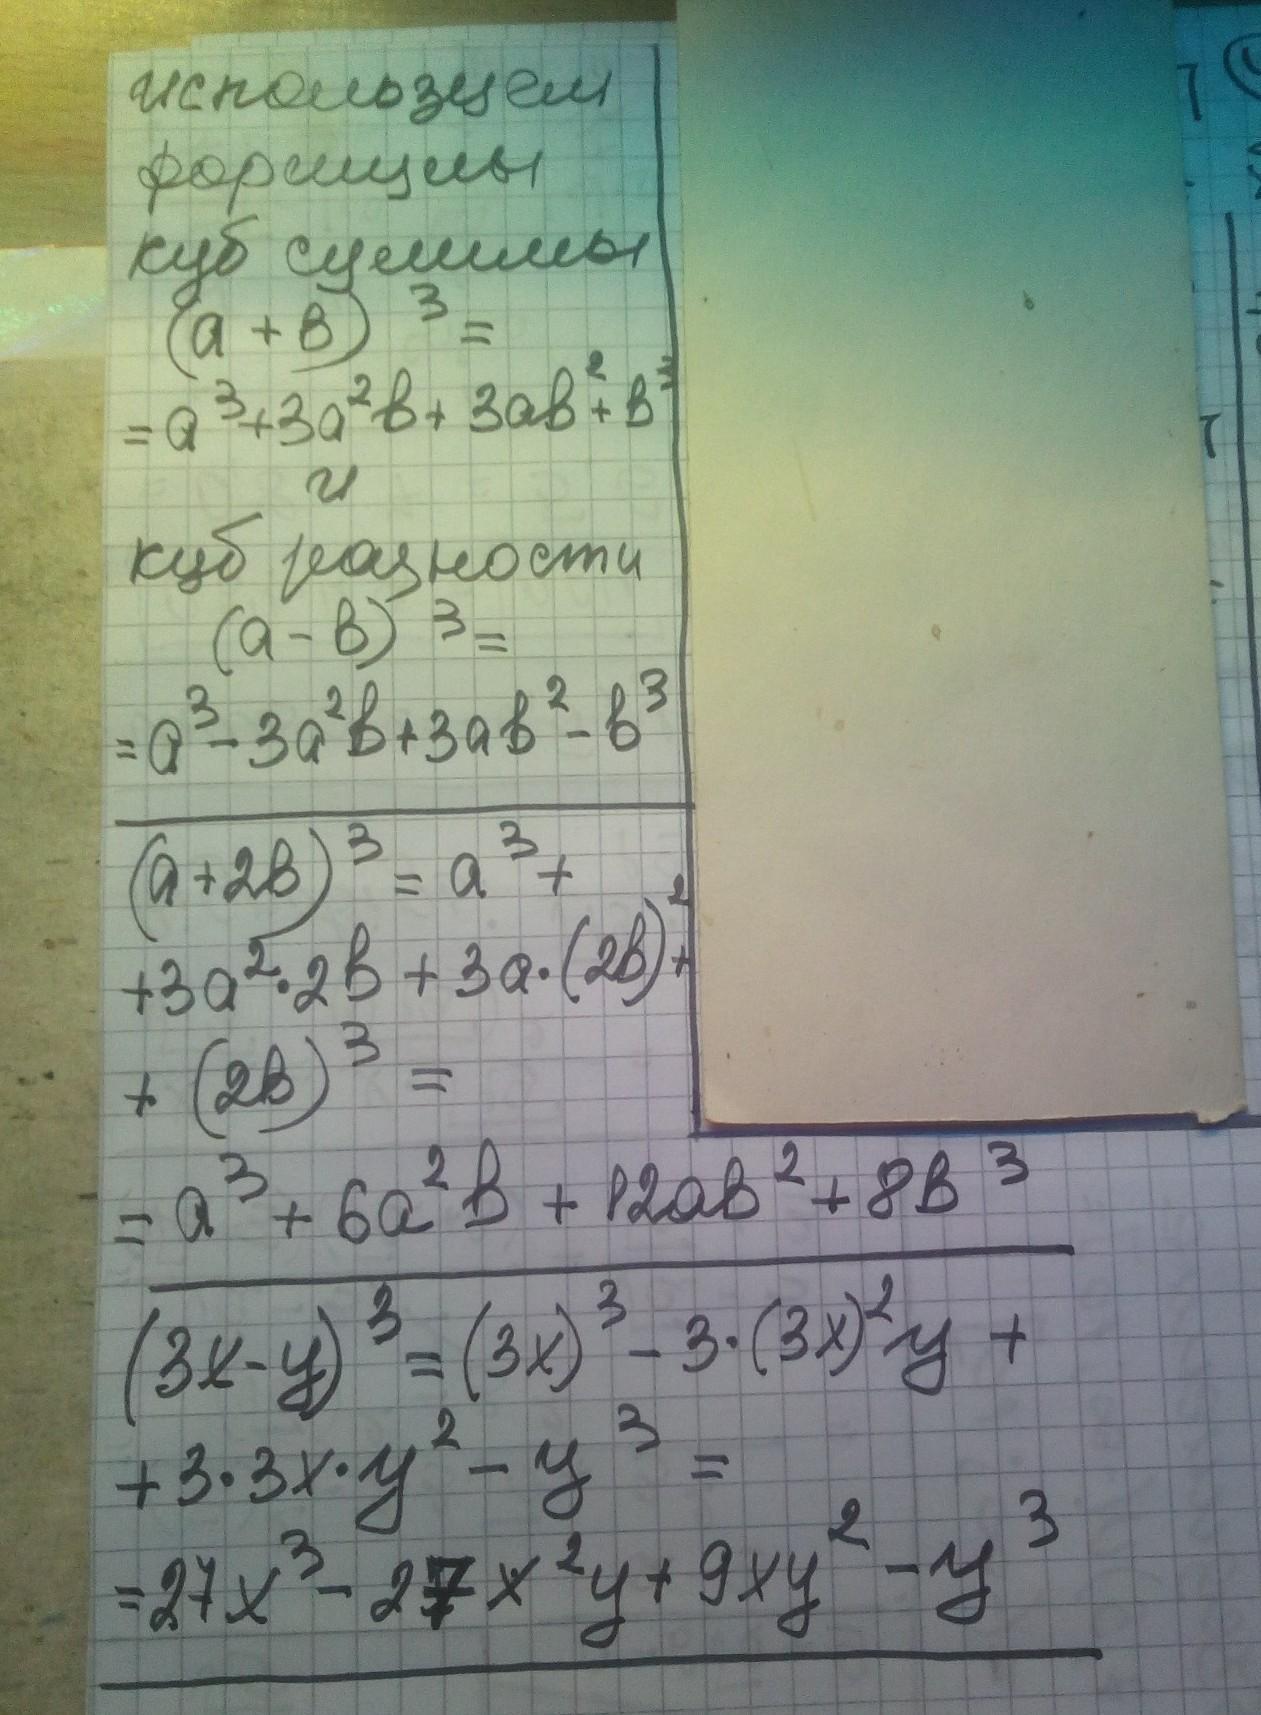 используем
формулы
куб суммы
(a + b)³ =
= a³+3a²b+3ab²+b³
и
куб разности
(a - b)³ =
= a³-3a²b+3ab²-b³
(a+2b)³ = a³+
+3a²·2b+3a·(2b)²+
+ (2b)³ =
= a³+6a²b+12ab²+8b³
(3x-y)³ = (3x)³-3·(3x)²y+
+3·3x·y²-y³ =
=27x³-27x²y+9xy²-y³